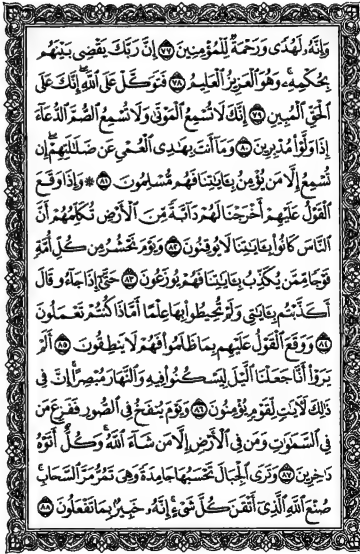 وَإِنَّهُۥ لَهُدًى وَرَحْمَةٌ لِّلْمُؤْمِنِينَ ٧٧ إِنَّ رَبَّكَ يَقْضِى بَيْنَهُم
بِحُكْمِهِۦ وَهُوَ ٱلْعَزِيزُ ٱلْعَلِيمُ ٧٨ فَتَوَكَّلْ عَلَى ٱللَّهِ إِنَّكَ عَلَى
ٱلْحَقِّ ٱلْمُبِينِ ٧٩ إِنَّكَ لَا تُسْمِعُ ٱلْمَوْتَىٰ وَلَا تُسْمِعُ ٱلصُّمَّ ٱلدُّعَآءَ
إِذَا وَلَّوْا۟ مُدْبِرِينَ ٨٠ وَمَآ أَنتَ بِهَـٰدِى ٱلْعُمْىِ عَن ضَلَـٰلَتِهِمْ إِن
تُسْمِعُ إِلَّا مَن يُؤْمِنُ بِـَٔايَـٰتِنَا فَهُم مُّسْلِمُونَ ٨١ ۞ وَإِذَا وَقَعَ
ٱلْقَوْلُ عَلَيْهِمْ أَخْرَجْنَا لَهُمْ دَآبَّةً مِّنَ ٱلْأَرْضِ تُكَلِّمُهُمْ أَنَّ
ٱلنَّاسَ كَانُوا۟ بِـَٔايَـٰتِنَا لَا يُوقِنُونَ ٨٢ وَيَوْمَ نَحْشُرُ مِن كُلِّ أُمَّةٍ
فَوْجًا مِّمَّن يُكَذِّبُ بِـَٔايَـٰتِنَا فَهُمْ يُوزَعُونَ ٨٣ حَتَّىٰٓ إِذَا جَآءُو قَالَ
أَكَذَّبْتُم بِـَٔايَـٰتِى وَلَمْ تُحِيطُوا۟ بِهَا عِلْمًا أَمَّاذَا كُنتُمْ تَعْمَلُونَ
٨٤ وَوَقَعَ ٱلْقَوْلُ عَلَيْهِم بِمَا ظَلَمُوا۟ فَهُمْ لَا يَنطِقُونَ ٨٥ أَلَمْ
يَرَوْا۟ أَنَّا جَعَلْنَا ٱلَّيْلَ لِيَسْكُنُوا۟ فِيهِ وَٱلنَّهَارَ مُبْصِرًا إِنَّ فِى
ذَٰلِكَ لَـَٔايَـٰتٍ لِّقَوْمٍ يُؤْمِنُونَ ٨٦ وَيَوْمَ يُنفَخُ فِى ٱلصُّورِ فَفَزِعَ مَن
فِى ٱلسَّمَـٰوَٰتِ وَمَن فِى ٱلْأَرْضِ إِلَّا مَن شَآءَ ٱللَّهُ وَكُلٌّ أَتَوْهُ
دَٰخِرِينَ ٨٧ وَتَرَى ٱلْجِبَالَ تَحْسَبُهَا جَامِدَةً وَهِىَ تَمُرُّ مَرَّ ٱلسَّحَابِ
صُنْعَ ٱللَّهِ ٱلَّذِىٓ أَتْقَنَ كُلَّ شَىْءٍ إِنَّهُۥ خَبِيرٌۢ بِمَا تَفْعَلُونَ ٨٨